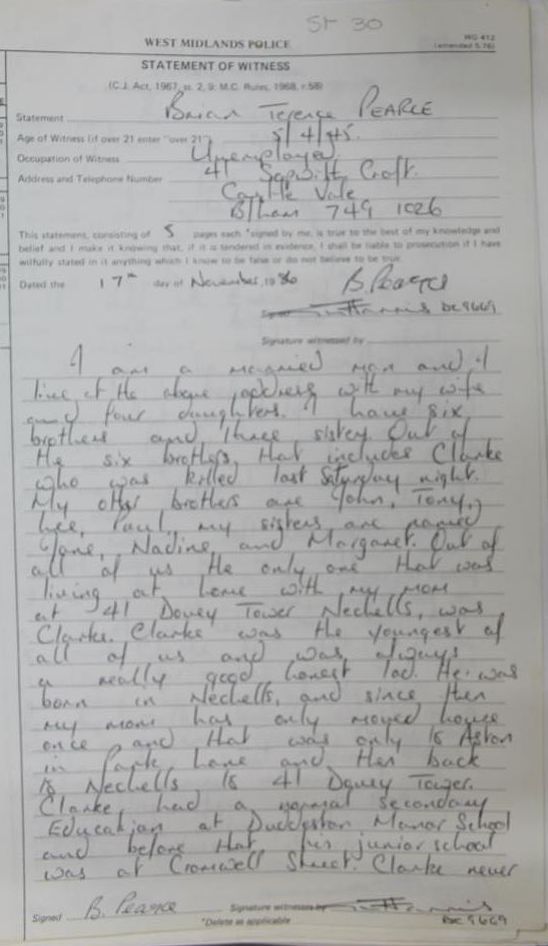 ST 30
WG 412
(amended 5.76)
WEST MIDLANDS POLICE
STATEMENT OF WITNESS
(C.J. Act, 1967, ss. 2, 9; M.C. Rules, 1968, r.58)
Statement Brian Terence PEARCE
Age of Witness (if over 21 enter "over 21") 5/4/45.
Occupation of Witness Unemployed
Address and Telephone Number 41 Sopwith Croft.
Castle Vale
B'ham 749 1026
This statement, consisting of 5 pages each signed by me, is true to the best of my knowledge and
belief and I make it knowing that, if it is tendered in evidence, I shall be liable to prosecution if I have
wilfully stated in it anything which I know to be false or do not believe to be true.
Dated the 17th day of November, 1980 B. Pearce
DC 9669
Signature witnessed by
I am a married man and I
live at the above address with my wife
and four daughters. I have six
brothers and three sisters. Out of
the six brothers, that includes Clarke
who was killed last Saturday night.
My other brothers are John, Tony,
Lee, Paul, my sisters are named
Jane, Nadine and Margaret. Out of
all of us the only one that was
living at home with my mom
at 41 Dovey Tower Nechells, was
Clarke. Clarke was the youngest of
all of us and was always
a really good honest lad. He was
born in Nechells, and since then
my mom has only moved house
once and that was only to Aston
in Park Lane and then back
to Nechells to 41 Dovey Tower.
Clarke, had a normal secondary
Education at Duddeston Manor School
and before that his junior school
was at Cromwell Street. Clarke never
Signed B. Pearce Signature witnessed by
DC 9669
*Delete as applicable